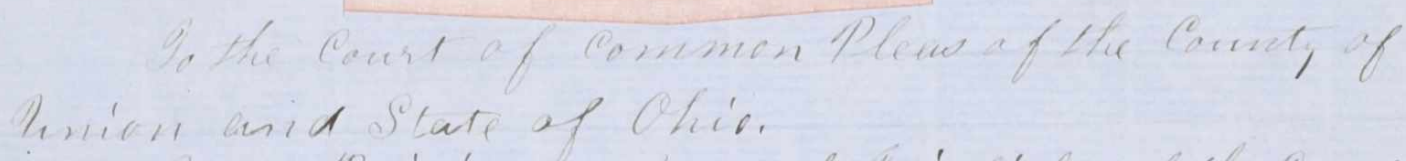 To the Court of Common Pleas of the County of
Union and State of Ohio.